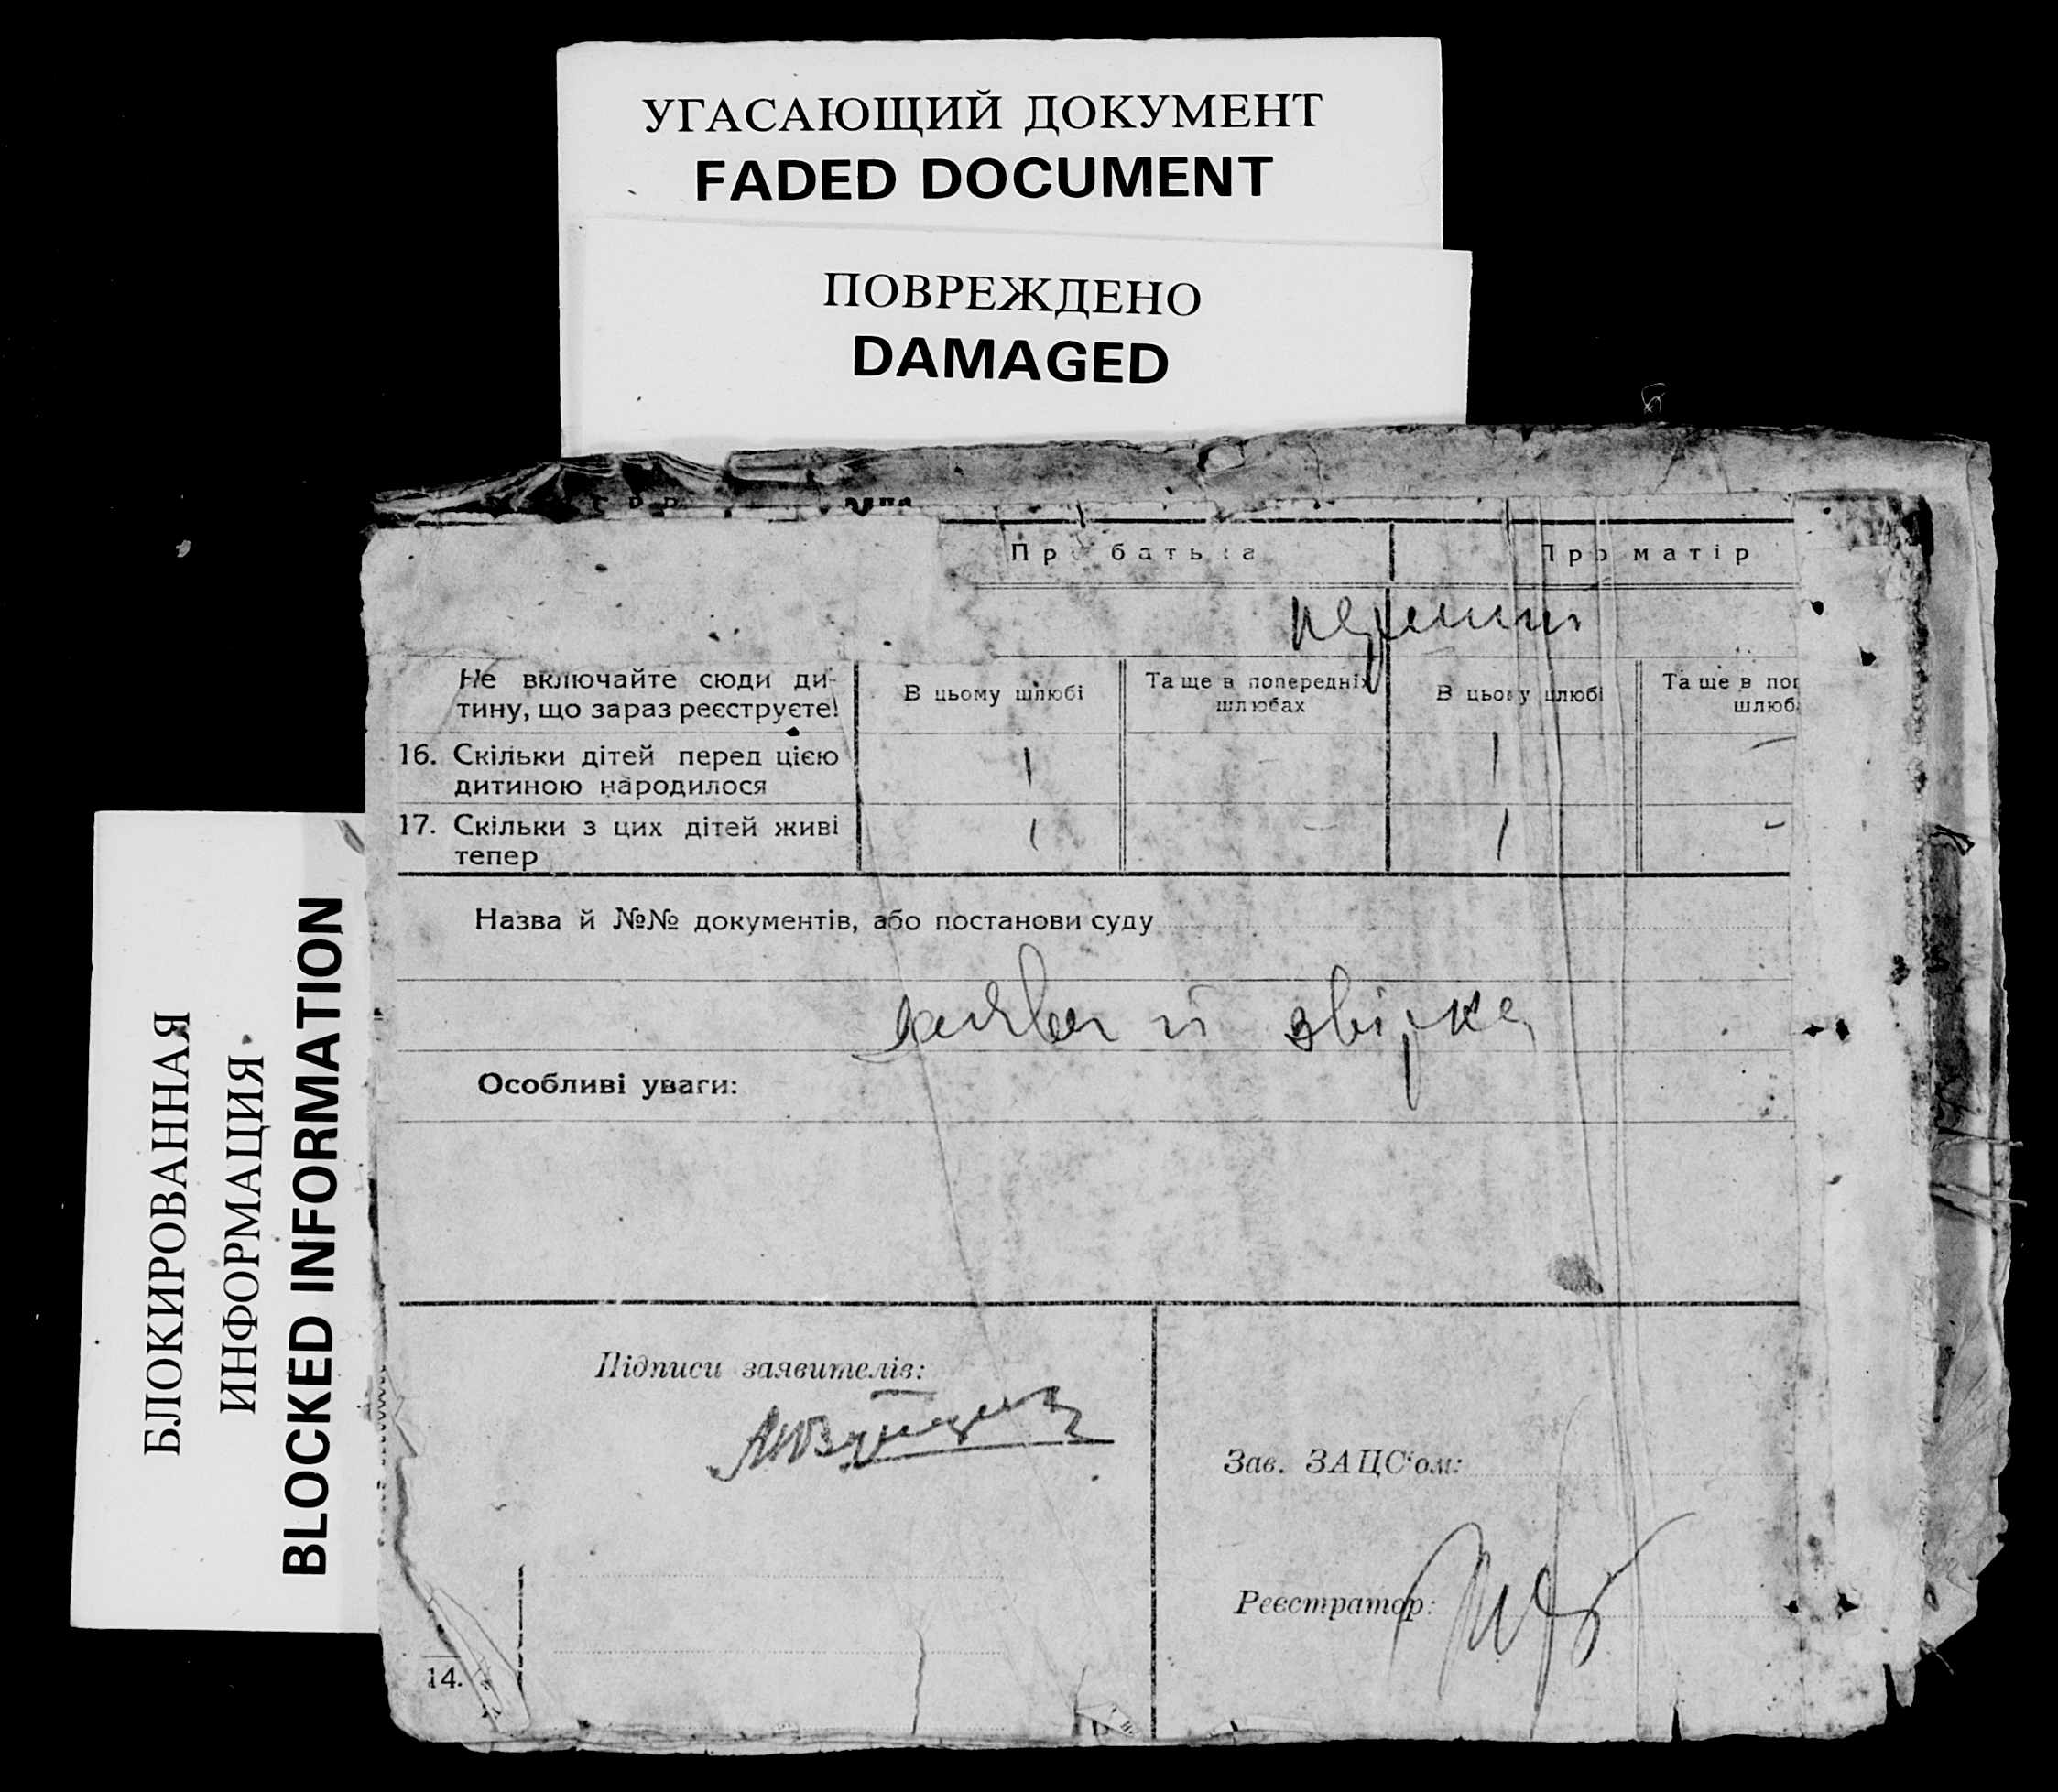 УГАСАЮЩИЙ ДОКУМЕНТ
FADED DOCUMENT
ПОВРЕЖДЕНО
DAMAGED
БЛОКИРОВАННАЯ
ИНФОРМАЦИЯ
BLOCKED INFORMATION
Про батька
Про матір
Не включайте сюди ди-
тину, що зараз реєструєте!
В цьому шлюбі
Та ще в попередніх
шлюбах
В цьому шлюбі
Та ще в поп
шлюб
16. Скільки дітей перед цією
дитиною народилося
1
1
—
17. Скільки з цих дітей живі
тепер
1
—
1
—
Назва й №№ документів, або постанови суду
заява й звірка
Особливі уваги:
Підписи заявителів:
Зав. ЗАЦС'ом:
Реєстратор:
14.